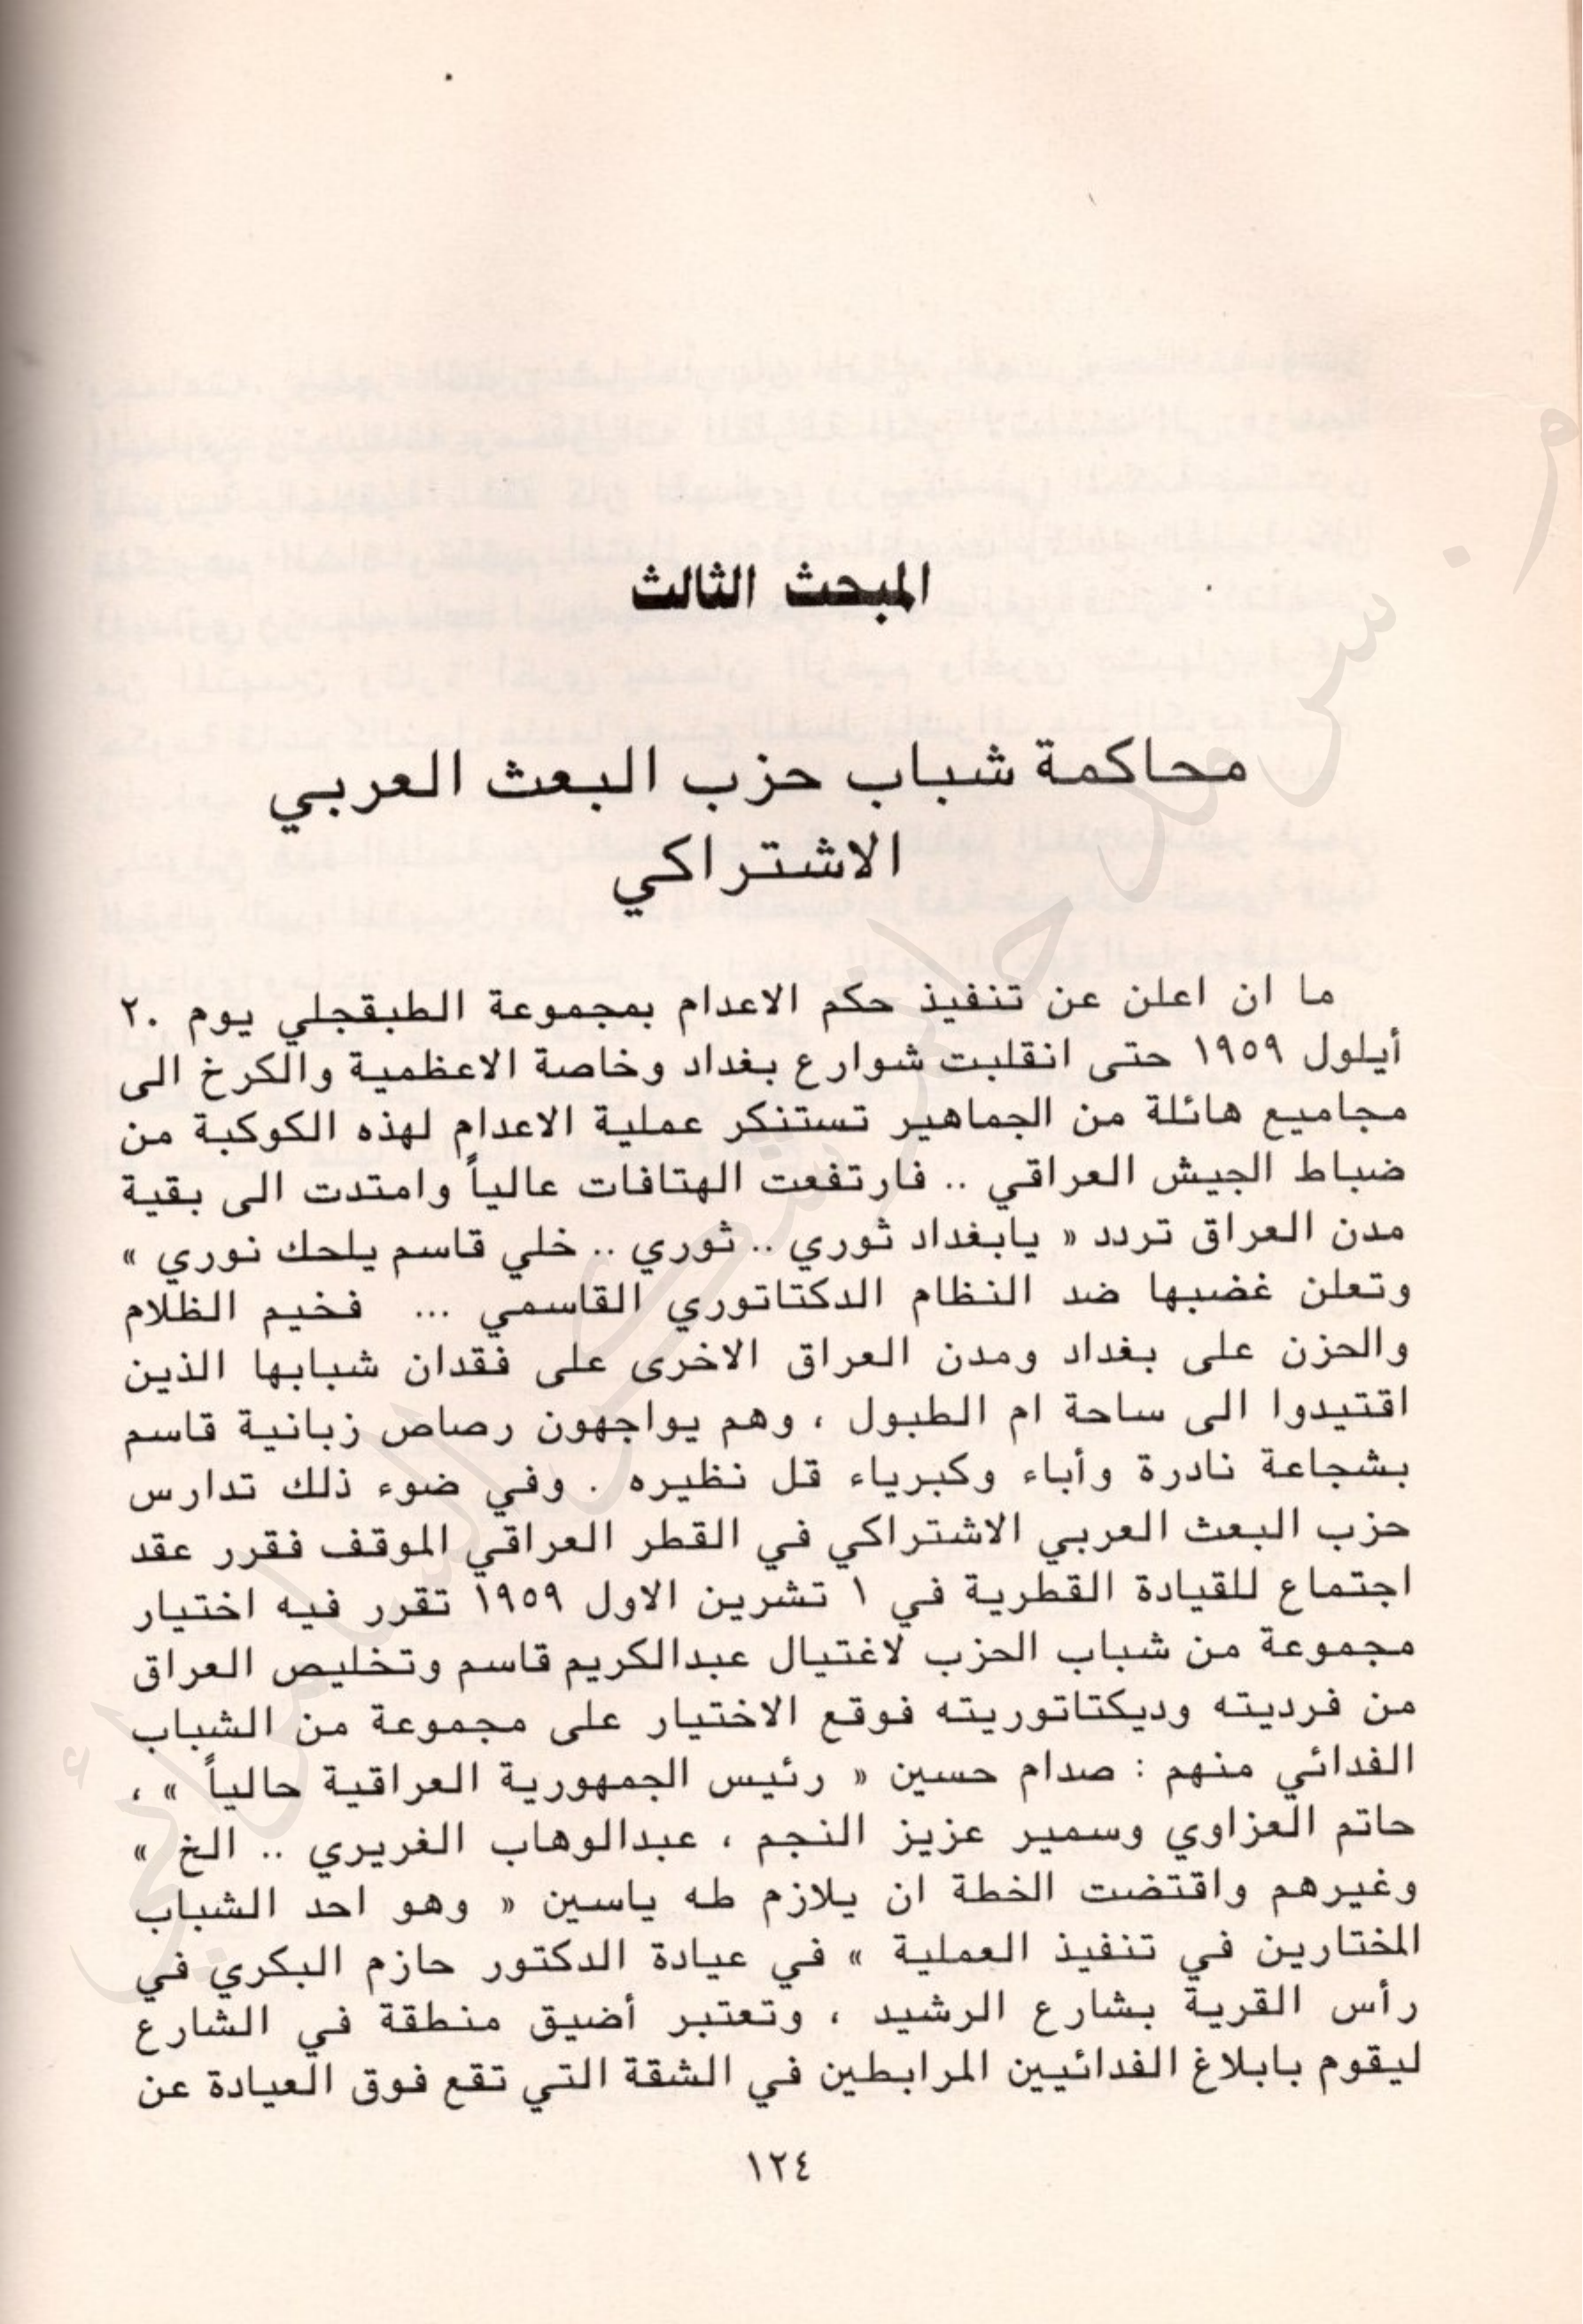 المبحث الثالث
محاكمة شباب حزب البعث العربي
الاشتراكي
ما ان اعلن عن تنفيذ حكم الاعدام بمجموعة الطبقجلي يوم ٢٠
أيلول ١٩٥٩ حتى انقلبت شوارع بغداد وخاصة الاعظمية والكرخ الى
مجاميع هائلة من الجماهير تستنكر عملية الاعدام لهذه الكوكبة من
ضباط الجيش العراقي .. فارتفعت الهتافات عالياً وامتدت الى بقية
مدن العراق تردد « يابغداد ثوري .. ثوري .. خلي قاسم يلحك نوري »
وتعلن غضبها ضد النظام الدكتاتوري القاسمي ... فخيم الظلام
والحزن على بغداد ومدن العراق الاخرى على فقدان شبابها الذين
اقتيدوا الى ساحة ام الطبول ، وهم يواجهون رصاص زبانية قاسم
بشجاعة نادرة وأباء وكبرياء قل نظيره . وفي ضوء ذلك تدارس
حزب البعث العربي الاشتراكي في القطر العراقي الموقف فقرر عقد
اجتماع للقيادة القطرية في ١ تشرين الاول ١٩٥٩ تقرر فيه اختيار
مجموعة من شباب الحزب لاغتيال عبدالكريم قاسم وتخليص العراق
من فرديته وديكتاتوريته فوقع الاختيار على مجموعة من الشباب
الفدائي منهم : صدام حسين « رئيس الجمهورية العراقية حالياً » ،
حاتم العزاوي وسمير عزيز النجم ، عبدالوهاب الغريري .. الخ »
وغيرهم واقتضت الخطة ان يلازم طه ياسين « وهو احد الشباب
المختارين في تنفيذ العملية » في عيادة الدكتور حازم البكري في
رأس القرية بشارع الرشيد ، وتعتبر أضيق منطقة في الشارع
ليقوم بابلاغ الفدائيين المرابطين في الشقة التي تقع فوق العيادة عن
١٢٤